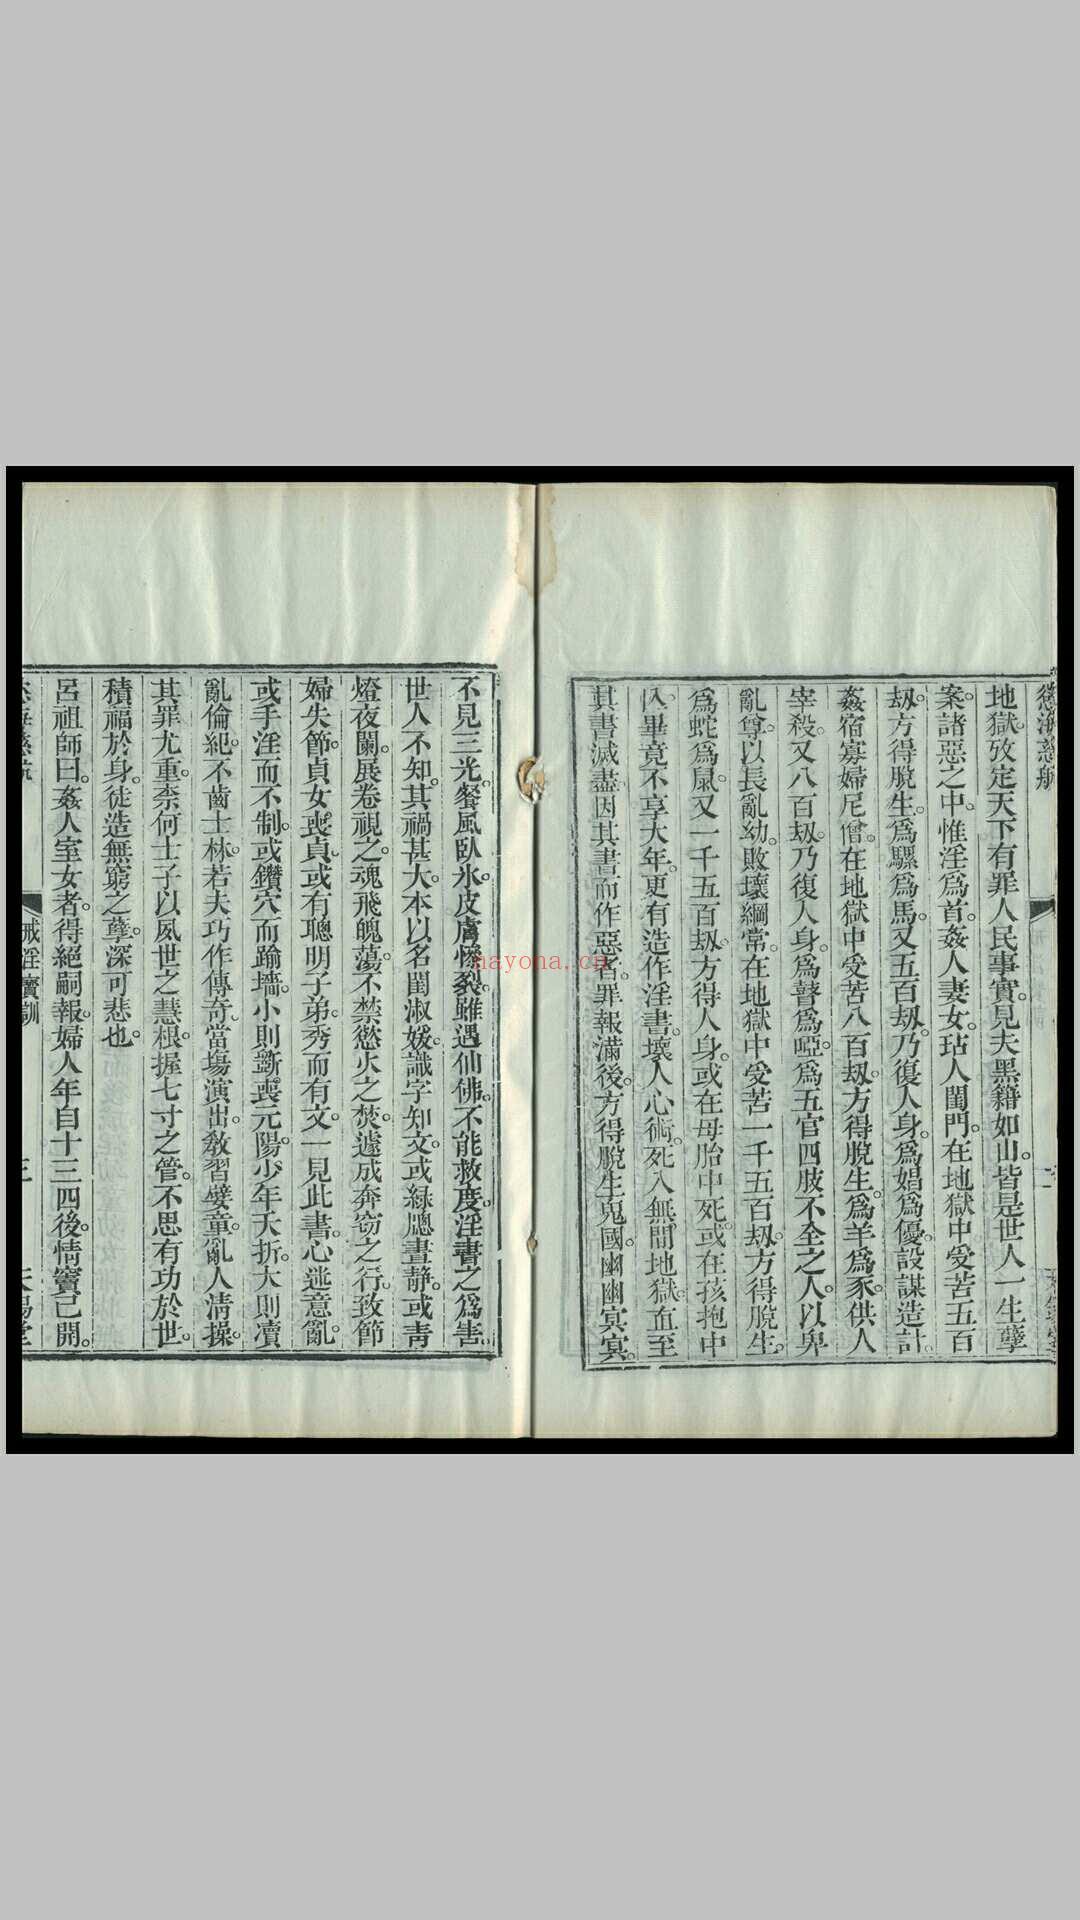 慾海慈航
地獄攷定天下有罪人民事實。見夫黑籍如山。皆是世人一生孽
案。諸惡之中。惟淫爲首。姦人妻女。玷人閨門。在地獄中受苦五百
刼。方得脫生。爲騾爲馬。又五百刼。乃復人身。爲娼爲優。設謀造計。
姦宿寡婦尼僧。在地獄中受苦八百刼。方得脫生。爲羊爲豕。供人
宰殺。又八百刼。乃復人身。爲瞽爲啞。爲五官四肢不全之人。以卑
亂尊。以長亂幼。敗壞綱常。在地獄中受苦一千五百刼。方得脫生。
爲蛇爲鼠。又一千五百刼。方得人身。或在母胎中死。或在孩抱中
亾。畢竟不享大年。更有造作淫書。壞人心術。死入無間地獄。直至
其書滅盡。因其書而作惡者。罪報滿後。方得脫生鬼國。幽幽冥冥。
不見三光。餐風臥氷。皮膚慘裂。雖遇仙佛。不能救度。淫書之爲害。
世人不知。其禍甚大。本以名閨淑媛。識字知文。或綠牕晝静。或靑
燈夜闌。展卷視之。魂飛魄蕩。不禁慾火之焚。遽成奔竊之行。致節
婦失節。貞女喪貞。或有聰明子弟。秀而有文。一見此書。心迷意亂。
或手淫而不制。或鑽穴而踰墻。小則斵喪元陽。少年夭折。大則凟
亂倫紀。不齒士林。若夫巧作傳奇。當塲演出。敎習嬖童。亂人清操。
其罪尤重。柰何士子以夙世之慧根。握七寸之管。不思有功於世。
積福於身。徒造無窮之孽。深可悲也。
呂祖師曰。姦人室女者。得絕嗣報。婦人年自十三四後。情竇已開。
戒淫寶訓
三